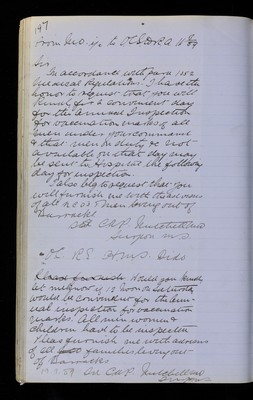 147
From M.O. i/c to
Sir
In accordance with para 1152
Medical Regulations I have the
honor to request that you will
kindly fix a convenient day
for the Annual Inspection
for vaccination marks of all
men under your command
& that men on duty & not
available on that day may
be sent to Hospital the following
day for inspection.
I also beg to request that you
will furnish me with the addresses
of all men living out of
Barracks
Sd C.A.P. Mitchell
Surgeon M.S.
Please furnish Would you kindly
let me know if 12 noon on Saturday
would be convenient for the Ann-
ual inspection for vaccination
marks. All men women &
children have to be inspected
Please furnish me with addresses
of all families living out
of Barracks
Sd C.A.P. Mitchell
Surgeon